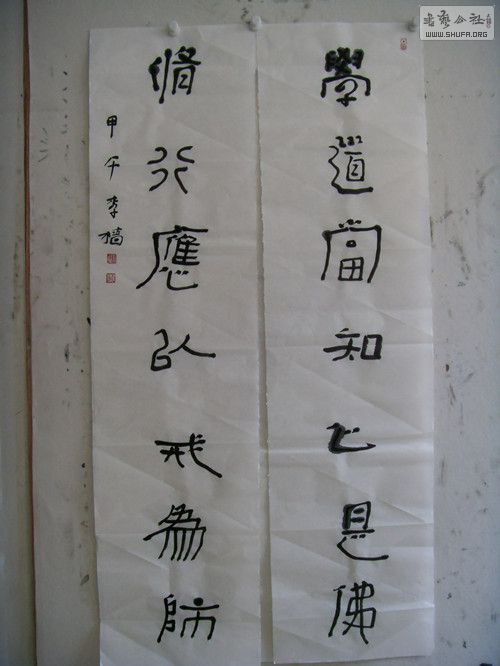 學道當知心是佛
修行應以戒為師
甲午李樯
書藝公社
WWW.SHUFA.ORG